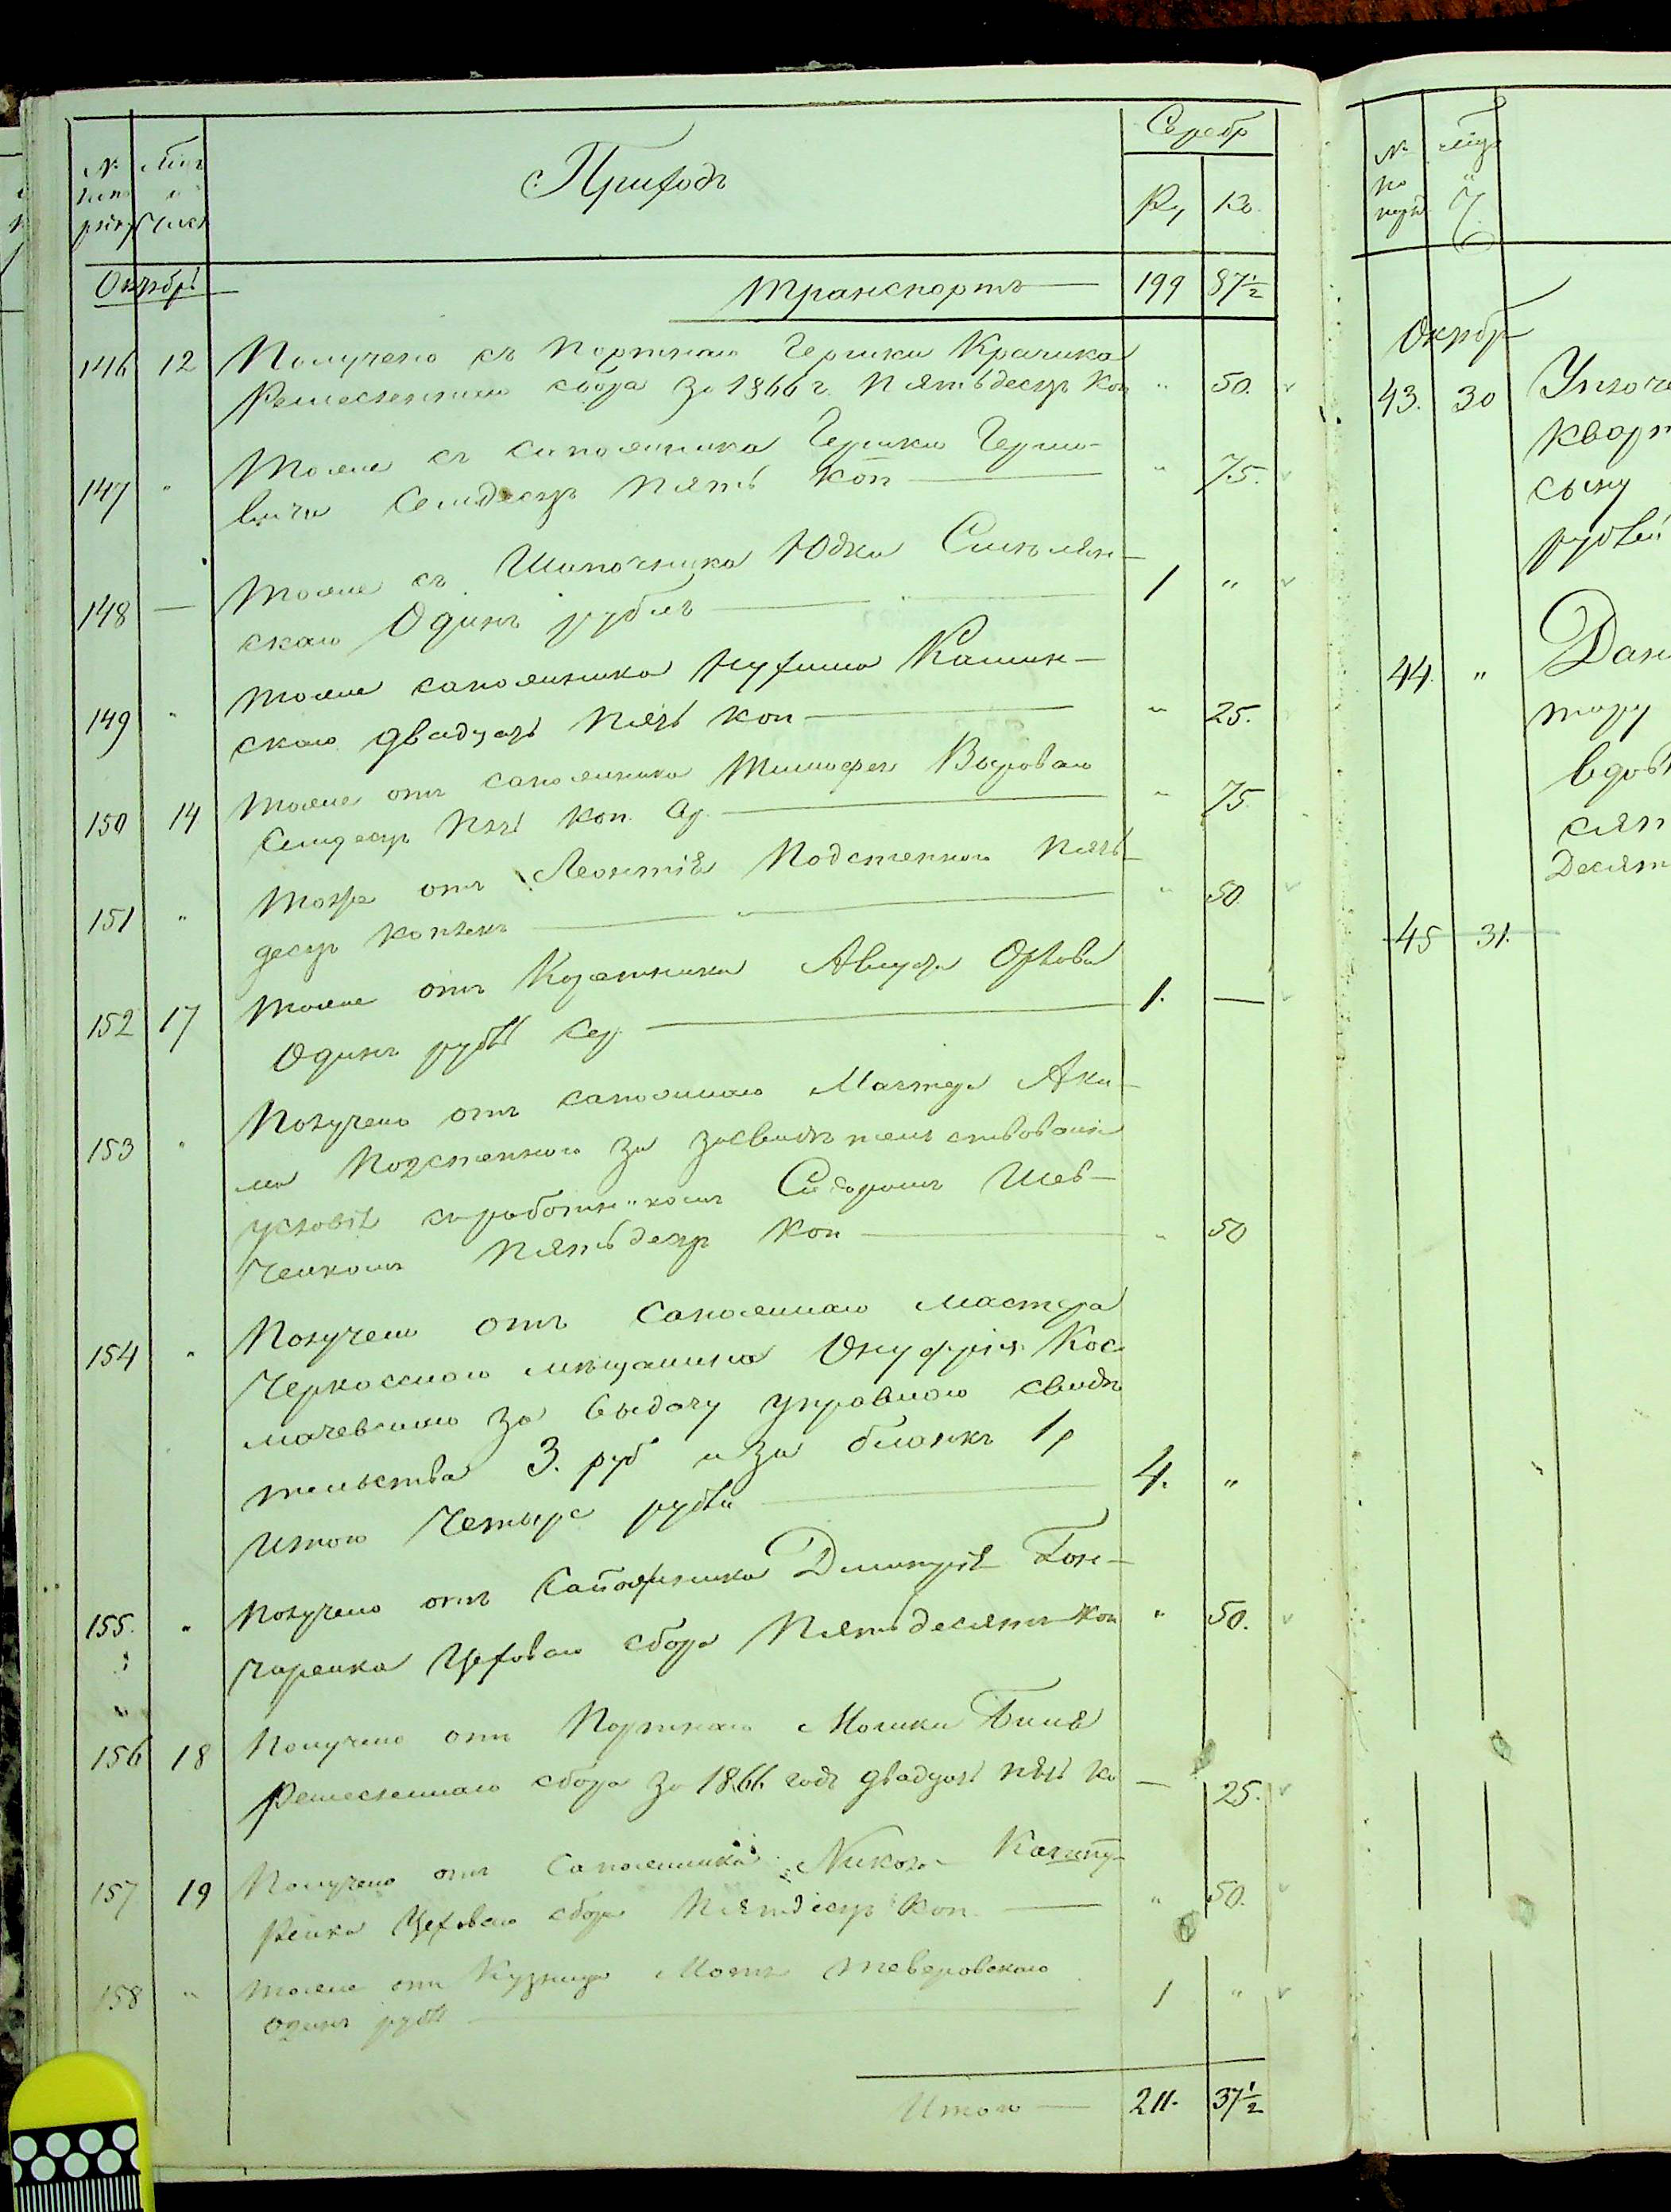 № Мѣс Приходъ Серебр
и
Числ Ру Ко.
Октябрь Транспортъ 199 87 1/2
146 12 Получено съ Портнаго Гершки Крачика
Ремесленнаго сбора за 1866 г. Пятьдесят Коп " 50.
147 " Тоже съ сапожника Гершки Гершо-
вича Семдесят Пять Коп " 75.
148 — Тоже съ Шапочника Юдки Смелян-
скаго Одинъ рубль 1 "
149 " Тоже сапожника Камин-
скаго двадцать Пять коп " 25.
150 14 Тоже отъ сапожника Тимофея
Семдесят Пять Коп. Ср. " 75.
151 " Тоже отъ Леонтія Подстепнаго Пять-
десят Копѣекъ " 50
152 17 Тоже отъ
Одинъ рубль Сер 1. —
153 " Получено отъ сапожнаго Мастера Аки-
ма Подстепнаго за засвидѣтельствованіе
условія съ работникомъ Сидоромъ Шев-
ченкомъ Пятьдесят Коп " 50
154 " Получено отъ Сапожнаго мастера
Черкасскаго мѣщанина Онуфрія Кос-
мачевскаго за выдачу управнаго свидѣ
тельства 3. руб и за бланкъ 1 р
итого Четыре рубли 4. "
155. " Получено отъ Сапожника Дмитрія Гон-
чаренка Цеховаго сбора Пятьдесятъ Коп " 50.
156 18 Получено отъ Портнаго Мошки
Ремесленнаго сбора за 1866 годъ двадцать пять ко — 25.
157 19 Получено отъ Сапожника Никола
ренка Цеховаго сбора Пятдесят Коп. " 50.
158 " Тоже отъ Кузнеца Тевяровскаго
Одинъ рубль 1 "
Итого 211. 37 1/2
№ Мѣс
по и
Ч
Октябр
43. 30
кварт
сыну
рублей
44. "
вдов
Десят
45 31.